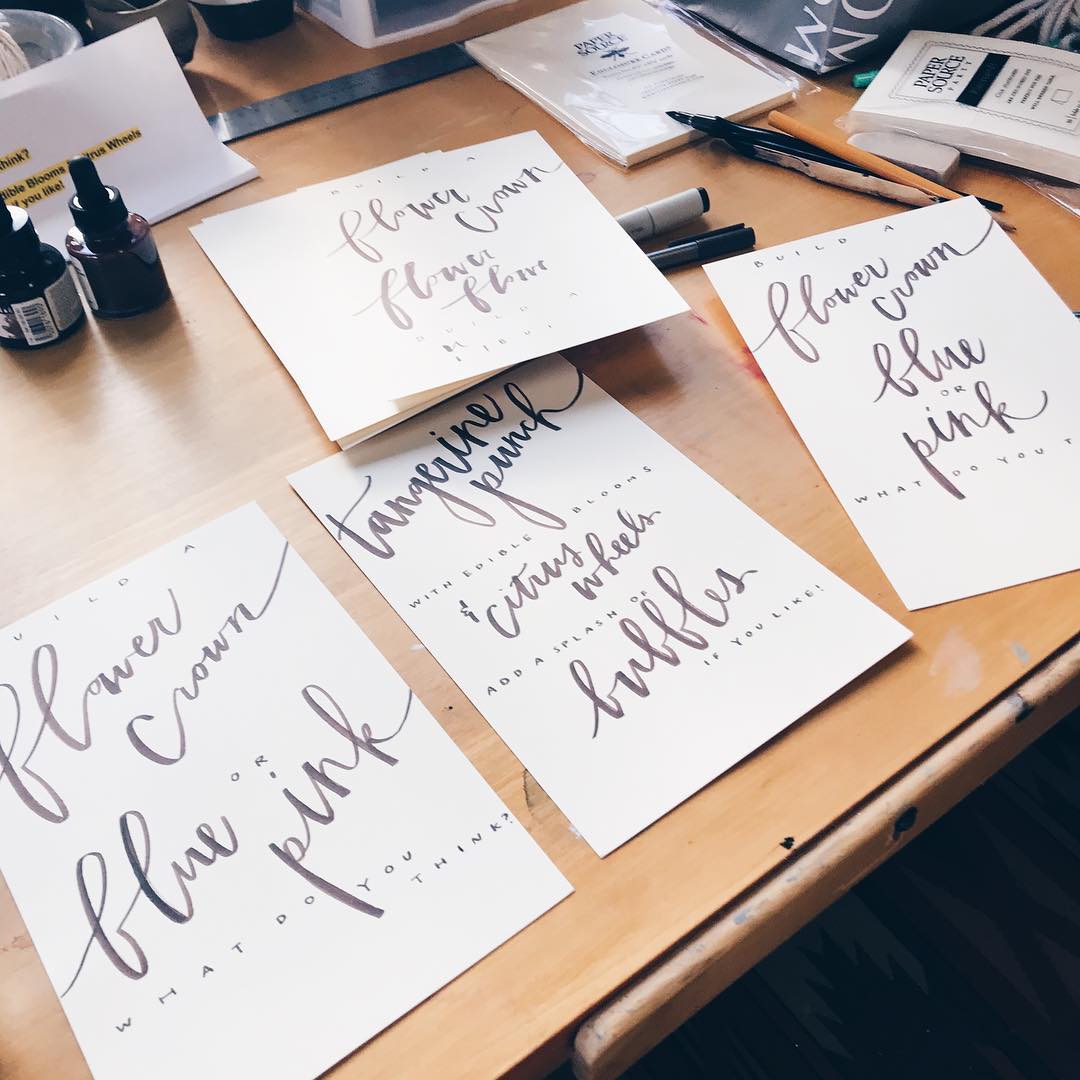 PAPER
SOURCE
PAPER
SOURCE
think?
Edible Blooms
Citrus Wheels
you like!
BUILD A
flower
crown
flower
BUILD A
BUILD A
flower
crown
blue
OR
pink
WHAT DO YOU T
tangerine
punch
WITH EDIBLE BLOOMS
& citrus
wheels
ADD A SPLASH OF
bubbles
IF YOU LIKE!
UILD A
flower
crown
blue
OR
pink
WHAT DO YOU
THINK?